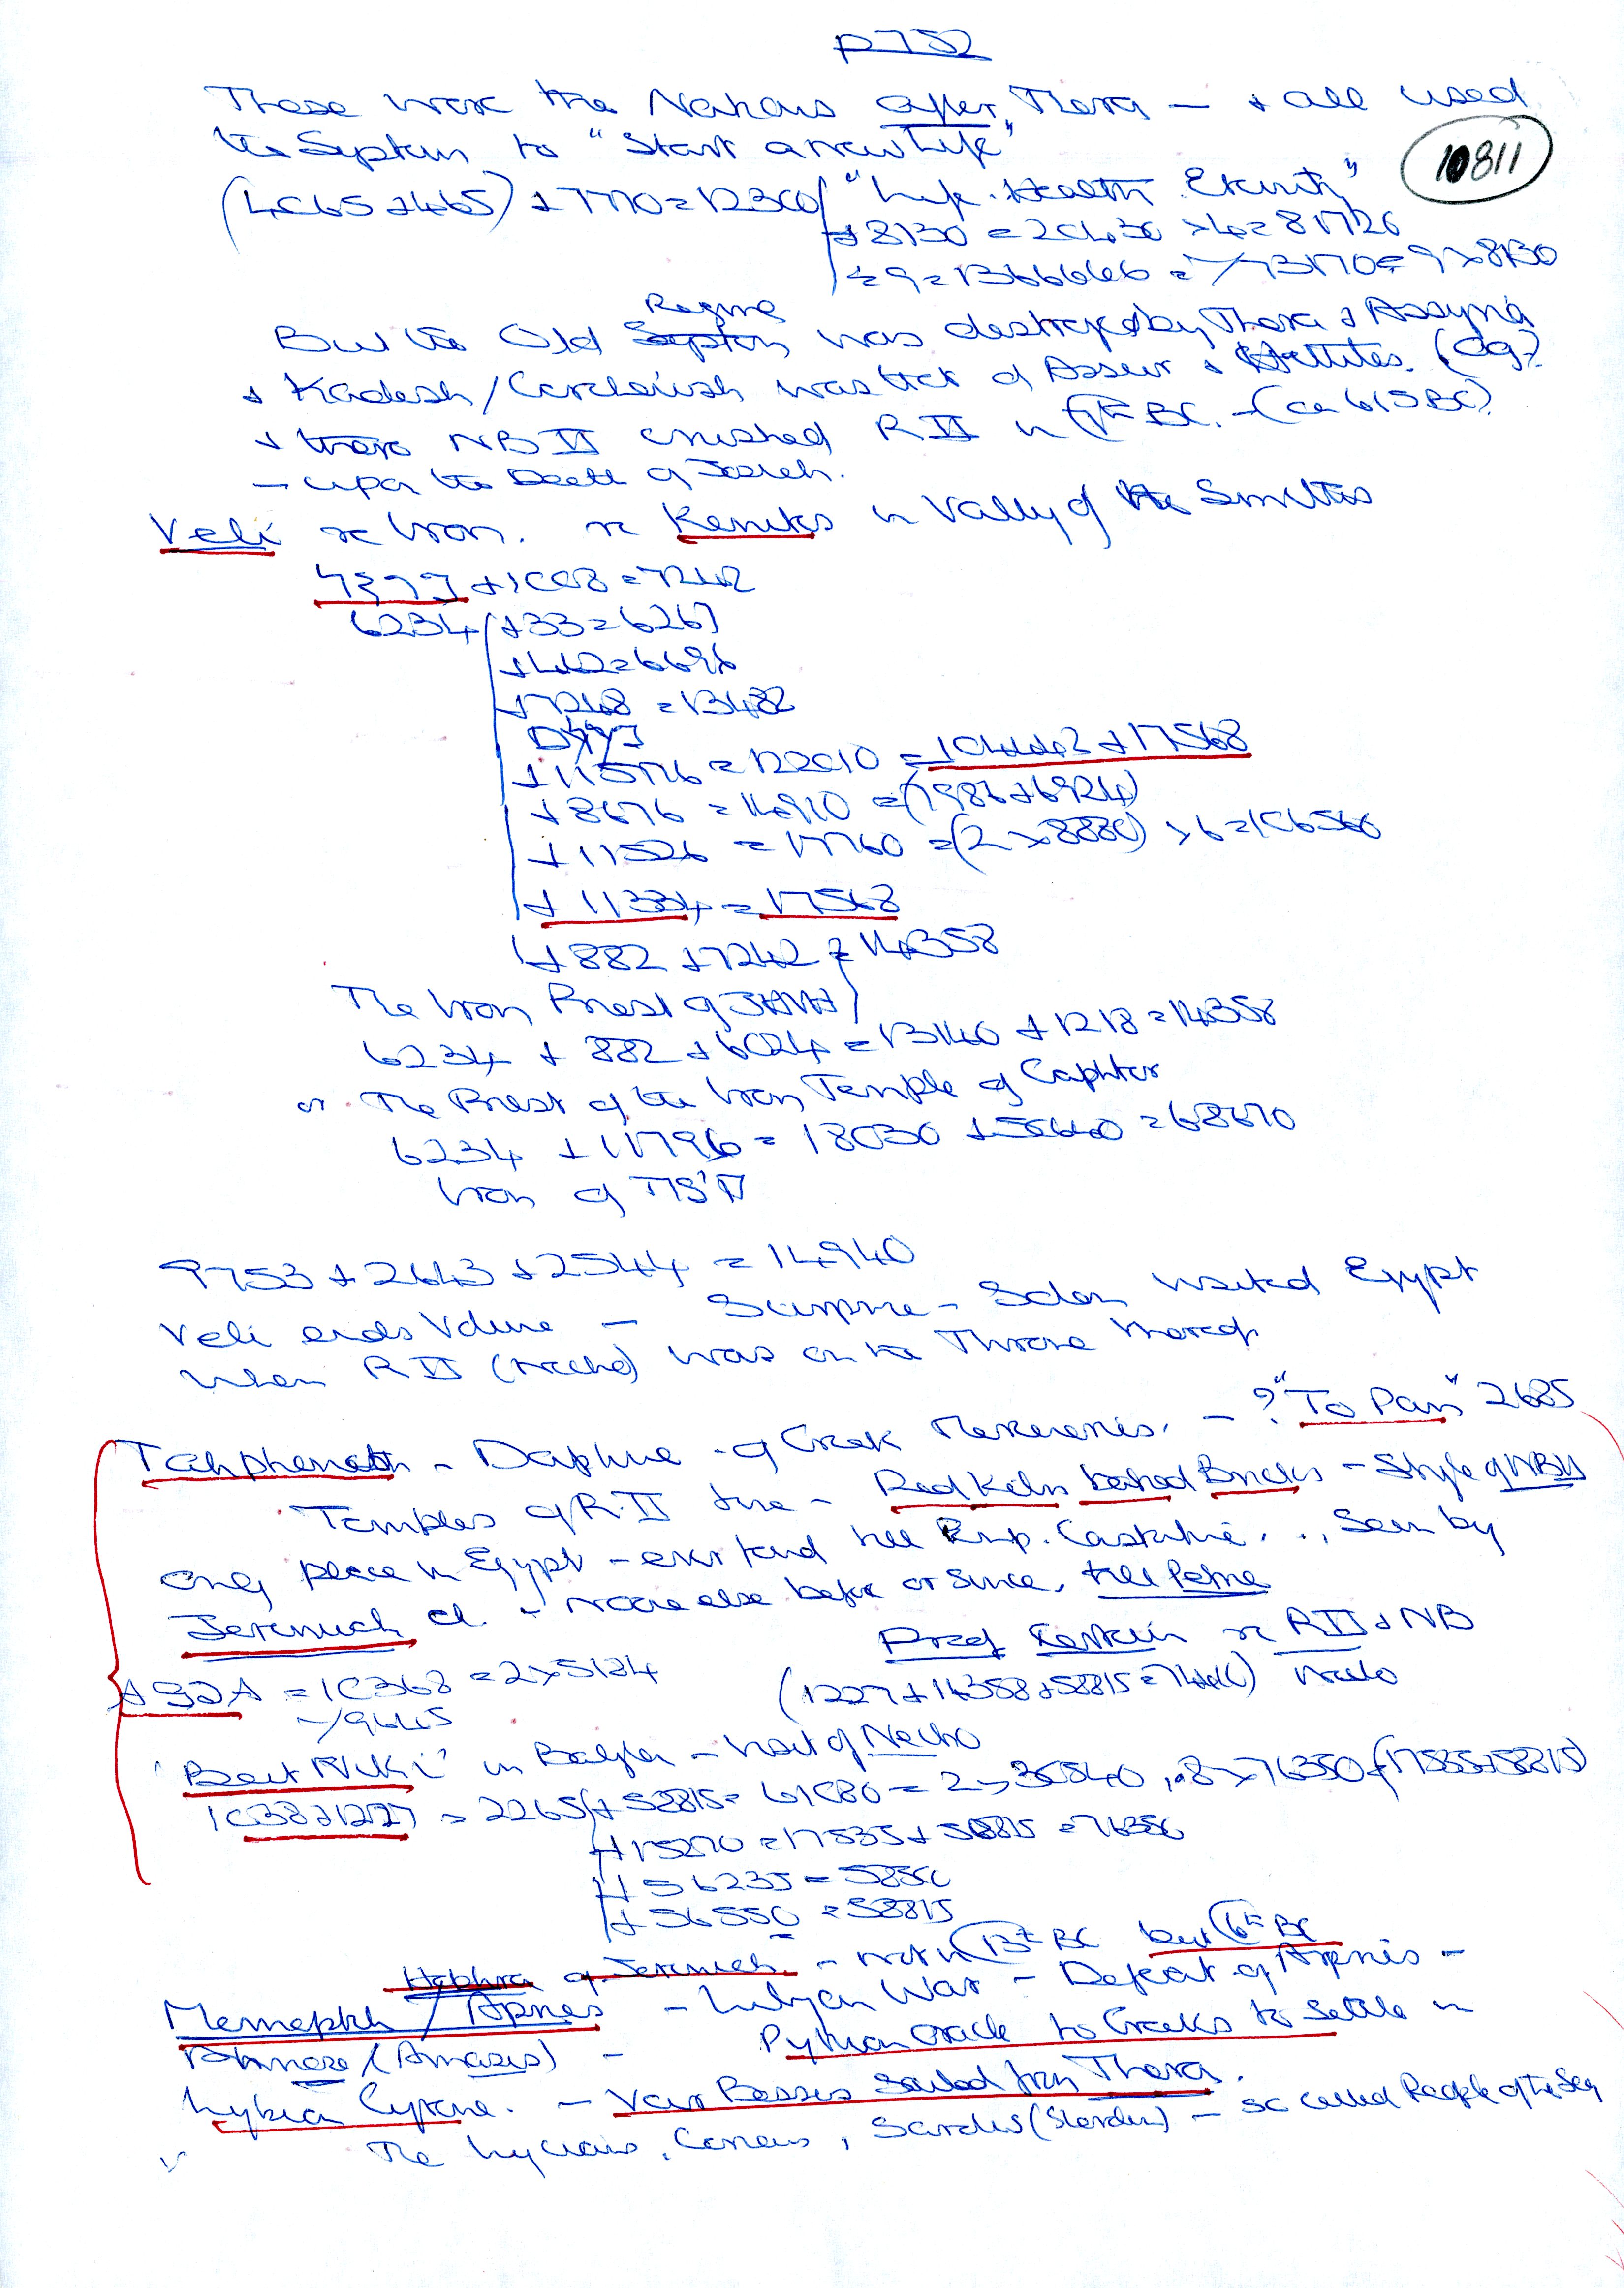 p752
10811
These were the Nations after Thera — + all used
the System to "Start a new Life"
(4065+465) + 7770=12300 "Life. Health. Eternity"
+8130 = 20430 x4=81720
÷9=1366666 = 73170=9x8130
Regime
But the Old System was destroyed by Thera + Assyria
+ Kadesh / Carchemish was that of Assur + Hittites.
+ there NB II crushed R II in BC. - (ca 615BC)
— upon the Death of Josiah.
Veli re Iron. re Kenites in Vally of the Smiths
+1008=7242
6234 +33=6267
+462=6696
+7248 =13482
=104443+17568
+8676 =14910 =(7986+6924)
+11526 =17760 =(2x8880) x6=106560
+11334 =17568
+882 +7242 =14358
The Iron Priest of
6234 + 882 +6024 =13140 +1218=14358
or The Priest of the Iron Temple of Caphtor
6234 +11796 = 18030 +50640 =68670
Iron of
9753 +2643 +2544 = 14940
Veli ends Volume — Surprise - Solon visited Egypt
when R II (Necho) was on the Throne thereof
Tahpheneth - Daphne - of Greek Mercenaries. - ? "To Pan" 2685
Temples of R.II time - Red Kiln baked Bricks - Style of NB II
only place in Egypt - ever found till Emp. Seen by
Jeremiah - None else before or since, till Petrie
Proof Certain re R II + NB
= 10368 =2x5184 (1227+14358+58815=74400) Necho
-/9665
'Beit Niki' in - of Necho
1038+1227 = 2265 +58815= 61080 = 2x30540, .8x76350 (17535+58815)
+15270 =17535+58815 =76350
+56235= 58500
+56550 =58815
Hophra of Jeremiah - not in 13th BC but 6th BC
Merneptah / Apries - Libyan War - Defeat of Apries -
Ahmose / (Amasis) - Pythian Oracle to Greeks to Settle in
Lybian Cyrene. — Sailed from Thera.
The Lycians, Carians, Sardis (Sharden) - so called People of the Sea